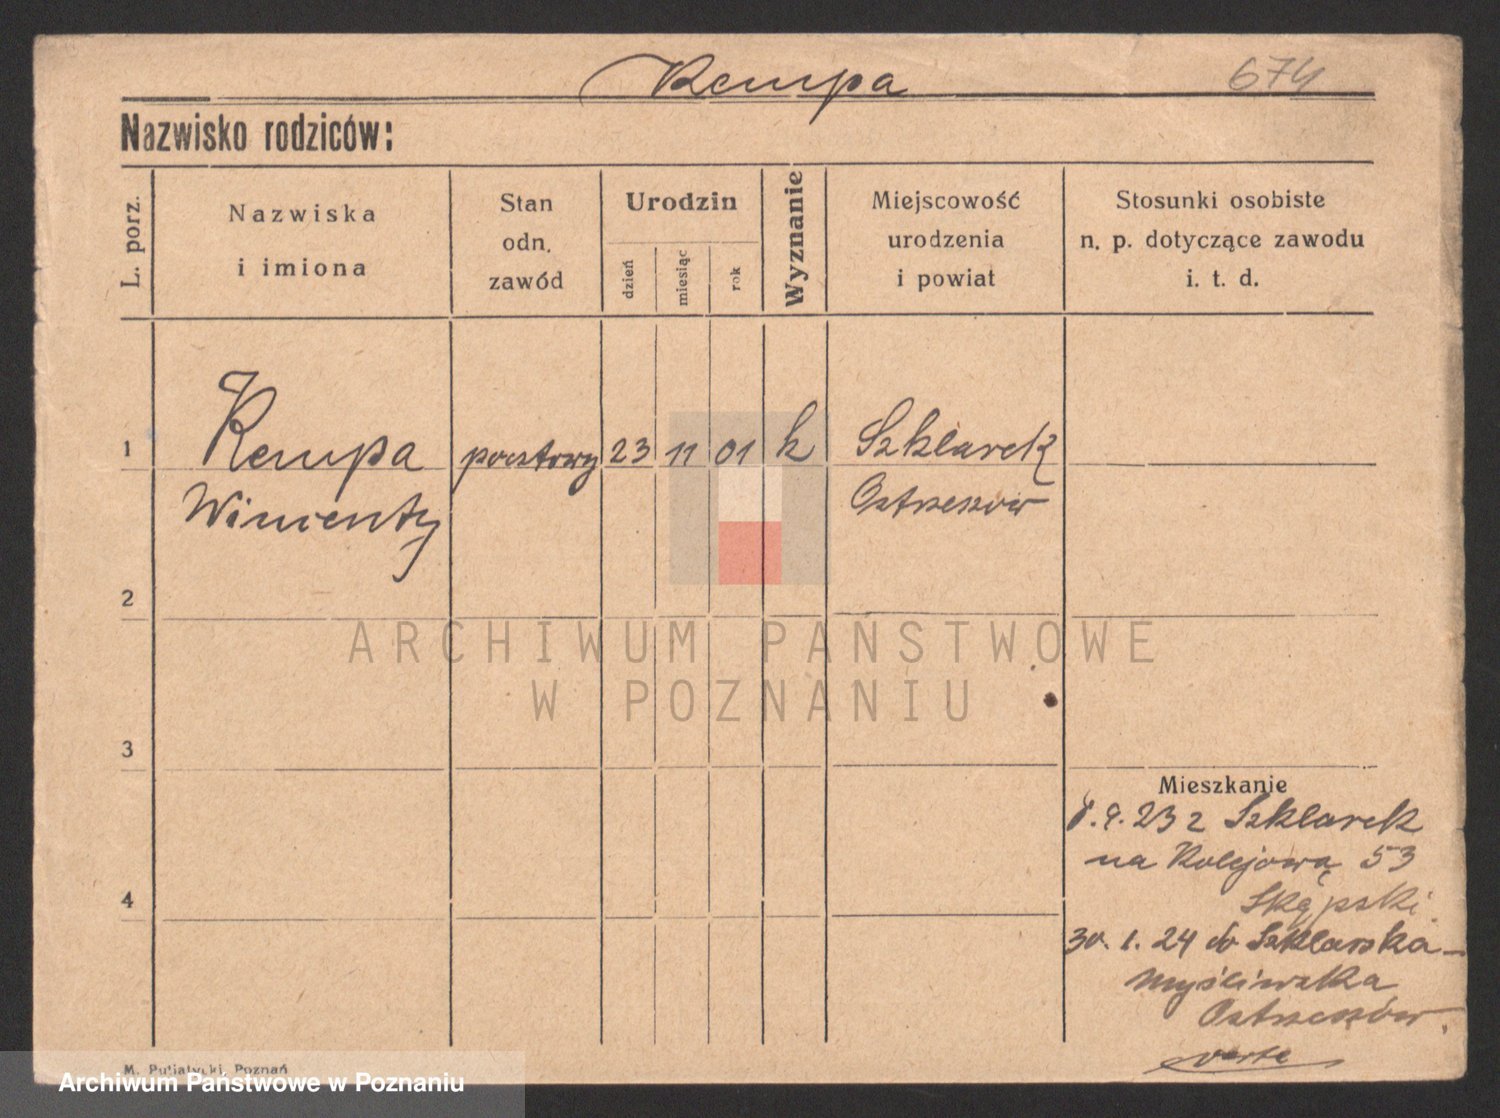 Kempa
674
Nazwisko rodziców:
L. porz.
Nazwiska
i imiona
Stan
odn.
zawód
Urodzin
dzień
miesiąc
rok
Wyznanie
Miejscowość
urodzenia
i powiat
Stosunki osobiste
n. p. dotyczące zawodu
i. t. d.
1
Kempa
Wincenty
pocztowy
23
11
01
k
Szklarek
Ostrzeszów
2
ARCHIWUM PAŃSTWOWE
W POZNANIU
3
4
Mieszkanie
8.9.23 z Szklarek
na Kolejową 53
Skąpski
30.1.24 do Szklarska-
Myśliwska
Ostrzeszów.
verte
M. Putiatycki, Poznań
Archiwum Państwowe w Poznaniu